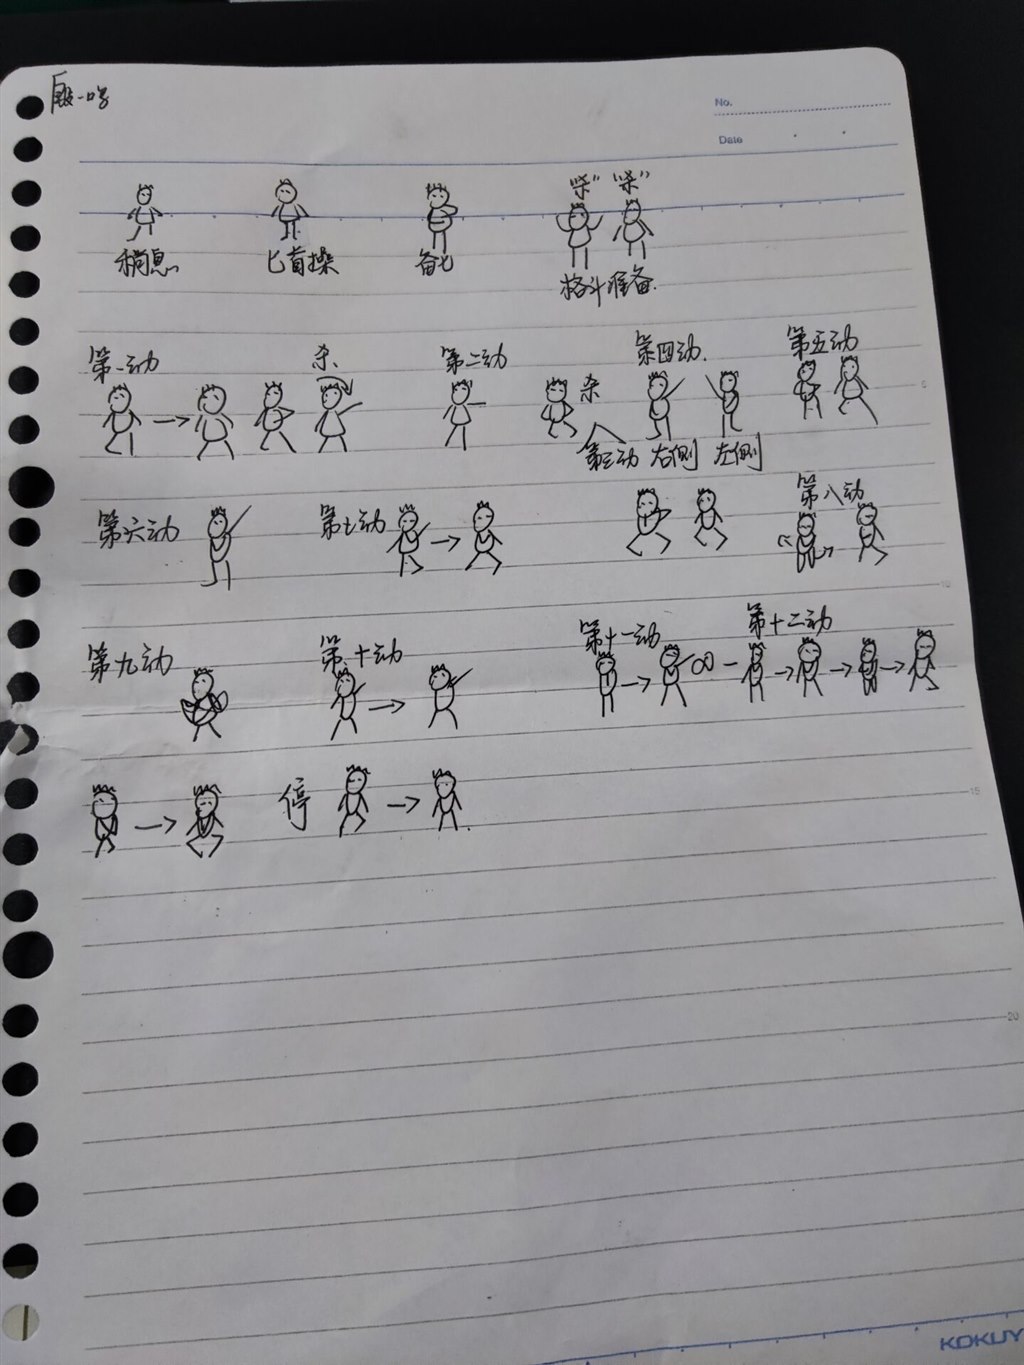 No.
Date
稍息
匕首操
备匕
"杀" "杀"
格斗准备.
第一动 杀. 第二动 杀 第四动. 第五动
第三动 右侧 左侧
5
第六动 第七动 第八动
10
第九动 第十动 第十一动 第十二动
停
15
20
KOKUY